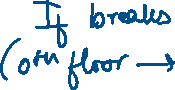 If breaks
(on floor →